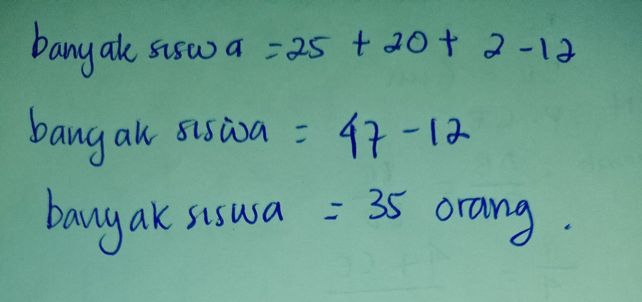 banyak siswa = 25 + 20 + 2 - 12
banyak siswa = 47 - 12
banyak siswa = 35 orang .